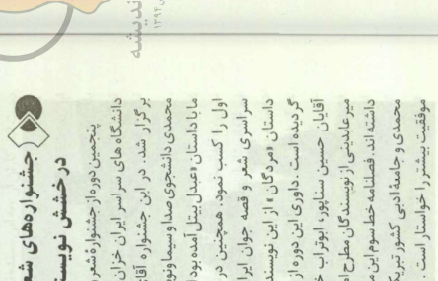 جشنواره‌های شعر
در خشش نویسند
پنجمین دوره از جشنوارهٔ شعر
دانشگاه های سراسر ایران خزان
برگزار شد. در این جشنواره آقا
محمدی دانشجوی صدا و سیما و نو
ما با داستان «عبدل بیتل آمده بود
اول را کسب نمود. همچنین در
سراسری شعر و قصه جوان ایرا
داستان «مردگان» از این نویسند
گردیده است. داوری این دوره از
آقایان حسین سناپور، ابوتراب خ
میرعابدینی از نویسندگان مطرح ا
داشته‌اند. فصلنامه خط سوم این م
محمدی و جامعهٔ ادبی کشور تبریک
موفقیت بیشتر را خواستار است.
اندیشه